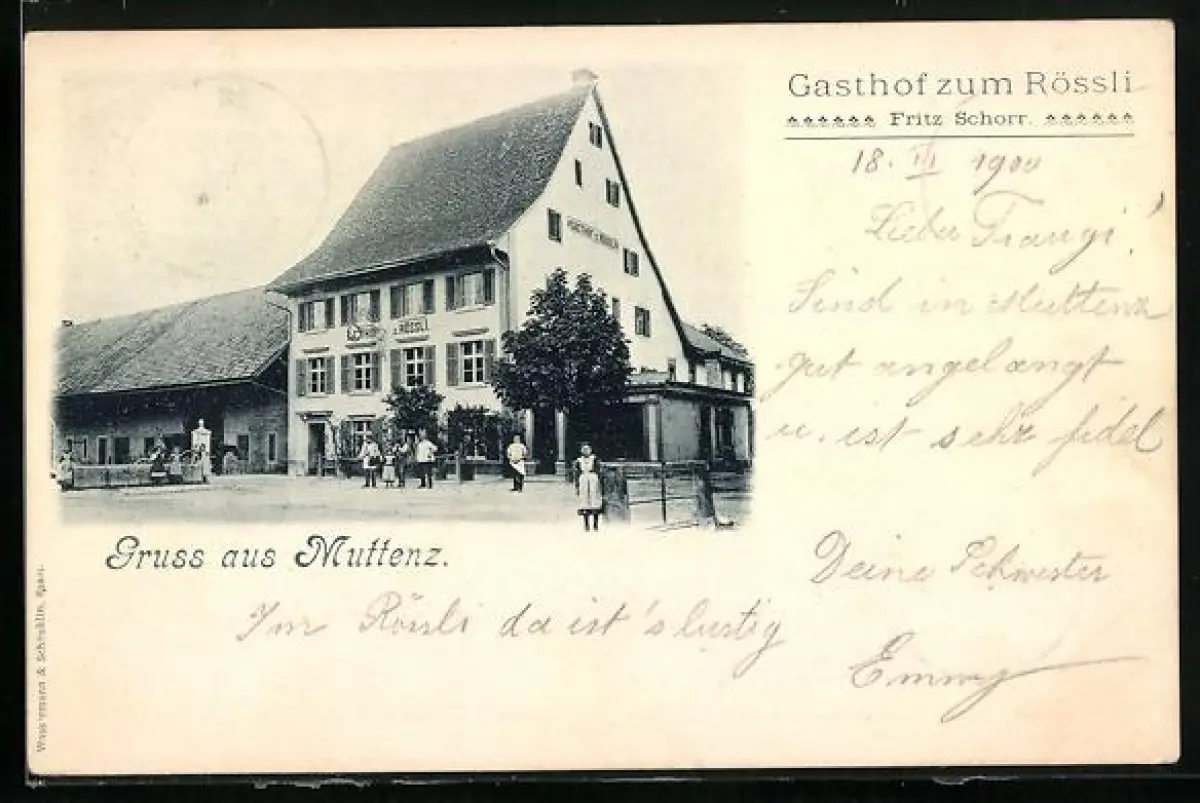 Gasthof zum Rössli
Fritz Schorr.
18. III 1900
Lieber Traugi!
Sind in Muttenz
gut angelangt
u. ist sehr fidel
Deine Schwester
Emmy
z. RÖSSLI.
Gruss aus Muttenz.
Im Rössli da ist's lustig
Wassermann & Schäublin, Basel.